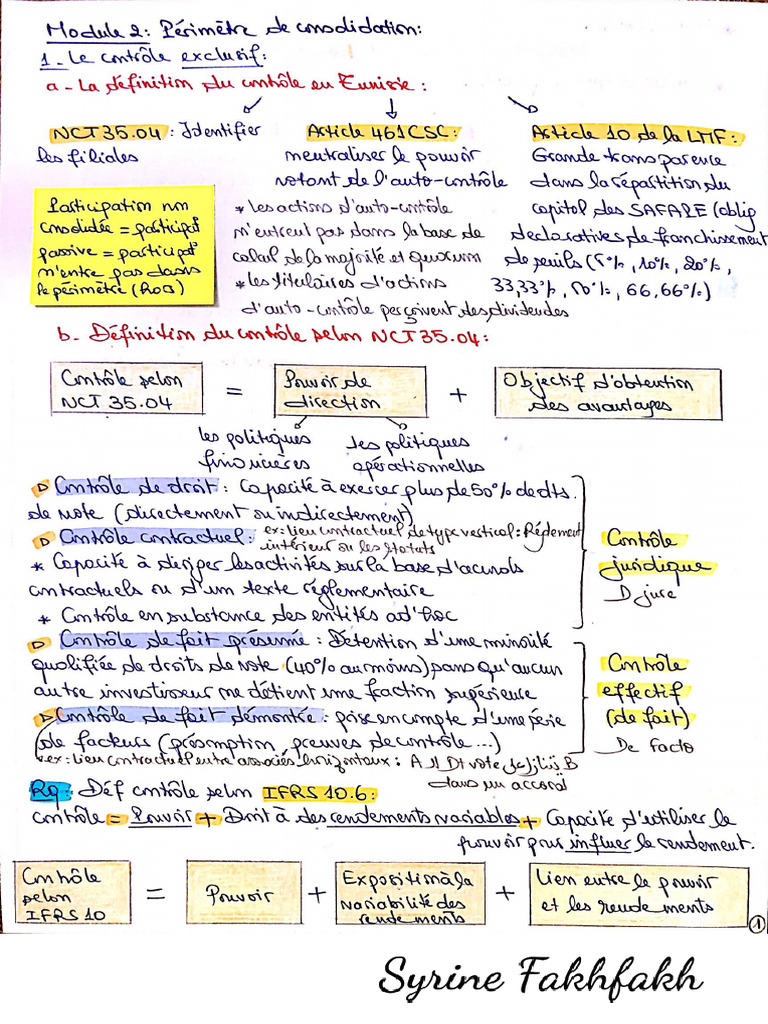 Module 2: Périmètre de consolidation:
1_ Le contrôle exclusif:
a - La définition du contrôle en Tunisie :
NCT 35.04 : Identifier
les filiales
Article 461 CSC:
neutraliser le pouvoir
votant de l'auto-contrôle
* Les actions d'auto-contrôle
n'entrent pas dans la base de
calcul de la majorité et quorum
* Les titulaires d'actions
d'auto-contrôle perçoivent des dividendes
Article 10 de la LMF:
Grande transparence
dans la répartition du
capital des SAFAPE (oblig
déclaratives de franchissement
de seuils (5%, 10%, 20%,
33,33%, 50%, 66,66%)
Participation non
consolidée = participat°
passive = participat°
n'entre pas dans
le périmètre (
b - Définition du contrôle selon NCT 35.04:
Contrôle selon
NCT 35.04
=
Pouvoir de
direction
+
Objectif d'obtention
des avantages
les politiques
financières
les politiques
opérationnelles
Contrôle de droit : Capacité à exercer plus de 50% de dts.
de vote (directement ou indirectement)
Contrôle contractuel: ex: lien contractuel de type vertical: Règlement
intérieur ou les statuts
* Capacité à diriger les activités sur la base d'accords
contractuels ou d'un texte réglementaire
* Contrôle en substance des entités ad'hoc
Contrôle
juridique
D jure
Contrôle de fait présumé : Détention d'une minorité
qualifiée de droits de vote (40% au moins) sans qu'aucun
autre investisseur ne détient une fraction supérieure
Contrôle de fait démontré : prise en compte d'une série
de facteurs (présomption, preuves de contrôle ...)
ex: Lien contractuel entre associés horizontaux : A يتنازل على Dt vote لـ B
dans un accord
Contrôle
effectif
(de fait)
De facto
Rq: Déf contrôle selon IFRS 10.6:
contrôle = Pouvoir + Droit à des rendements variables + Capacité d'utiliser le
pouvoir pour influer le rendement.
Contrôle
selon
IFRS 10
=
Pouvoir
+
Exposition à la
variabilité des
rendements
+
Lien entre le pouvoir
et les rendements
1
Syrine Fakhfakh